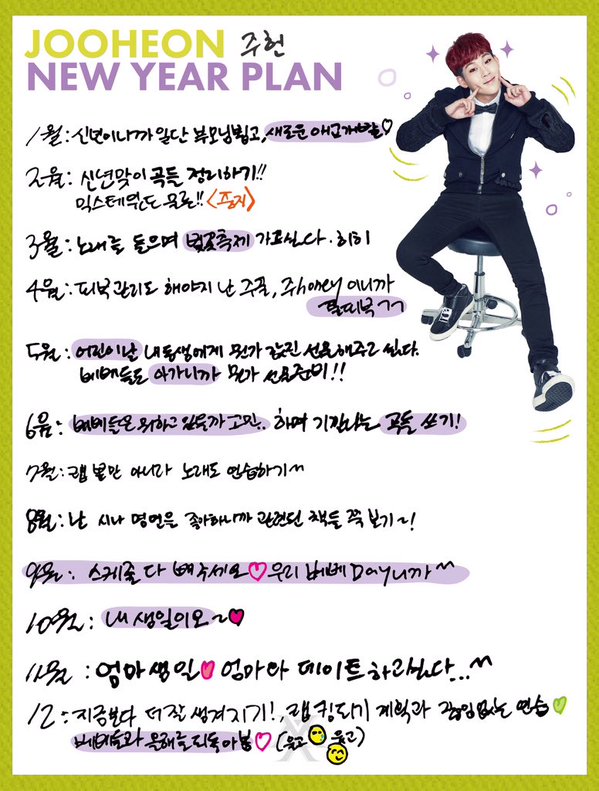 JOOHEON 주헌
NEW YEAR PLAN
1월 : 신년이니까 일단 부모님뵙고, 새로운 애교개발♡
2월 : 신년맞이 곡들 정리하기!!
믹스테입도 무료!! <중지>
3월 : 노래를 들으며 벚꽃축제 가고싶다. 히히
4월 : 피부관리도 해야지 난 주꿀, 주honey 이니까
꿀피부 ㄱㄱ
5월 : 어린이날 내 동생에게 뭔가 값진 선물해주고 싶다.
베베들도 아가니까 뭔가 선물준비!!
6월 : 베베들은 뭐하고 있을까 고민.. 하며 기깔나는 곡들 쓰기!
7월 : 랩 뿐만 아니라 노래도 연습하기~
8월 : 난 시나 명언을 좋아하니까 관련된 책들 꼭 보기~!
9월 : 스케줄 다 빼주세요♡우리 베베 Day니까~
10월 : 내 생일이오~♥
11월 : 엄마생일♥ 엄마와 데이트하고싶다...~
12 : 지금보다 더 잘 생겨지기!, 랩킹되기 계획과 끊임없는 연습♡
베베들과 올해를 되돌아봄♡ (윽고 윽고)